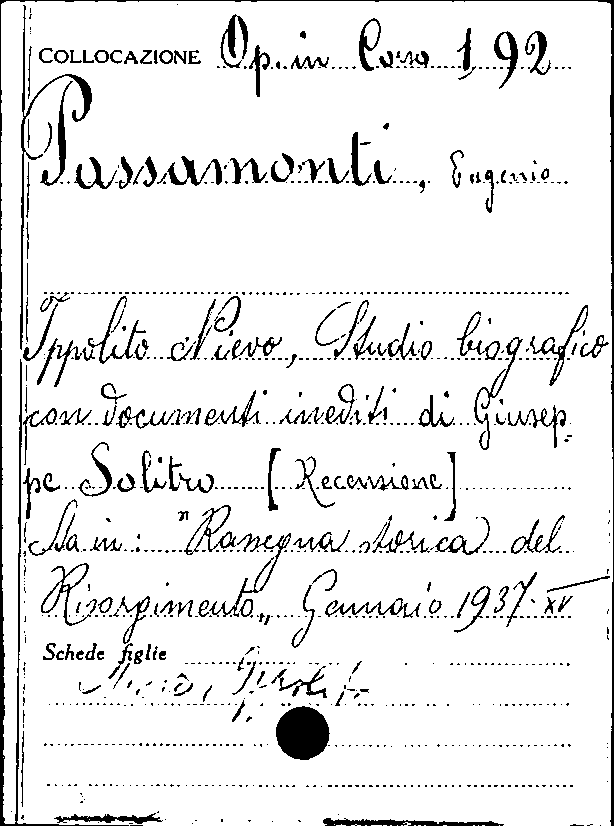 COLLOCAZIONE Op. in Coro 1, 92
Passamonti, Eugenio
Ippolito Nievo, Studio biografico
con documenti inediti di Giusep-
pe Solitro [Recensione]
Sta in: "Rassegna storica del
Risorgimento„ Gennaio 1937-XV
Schede figlie
Nievo, Ippolito